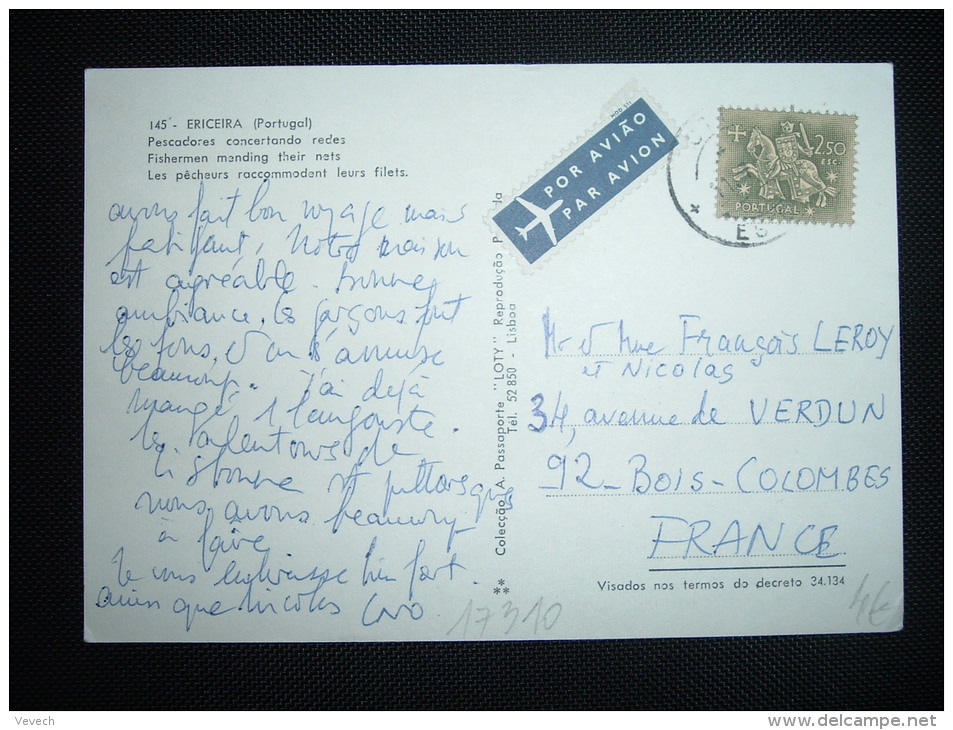 145 - ERICEIRA (Portugal)
Pescadores concertando redes
Fishermen mending their nets
Les pêcheurs raccommodent leurs filets.
avons fait bon voyage mais
fatigant, Notre maison
est agréable. bonne
ambiance. les garçons sont
les fous, et on s'amuse
beaucoup. J'ai déjà
mangé 1 langouste.
les alentours de
Lisbonne st pittoresques
nous avons beaucoup
à faire
Je vous embrasse bien fort.
ainsi que nicolas
17310
Colecção A. Passaporte "LOTY" Reprodução
Tél. 52 850 - Lisboa
**
MOD.
POR AVIÃO
PAR AVION
2,50
ESC.
PORTUGAL
Mr et Mme François LEROY
et Nicolas
34, avenue de VERDUN
92 - BOIS - COLOMBES
FRANCE
Visados nos termos do decreto 34.134
4€
Vevech
www.delcampe.net